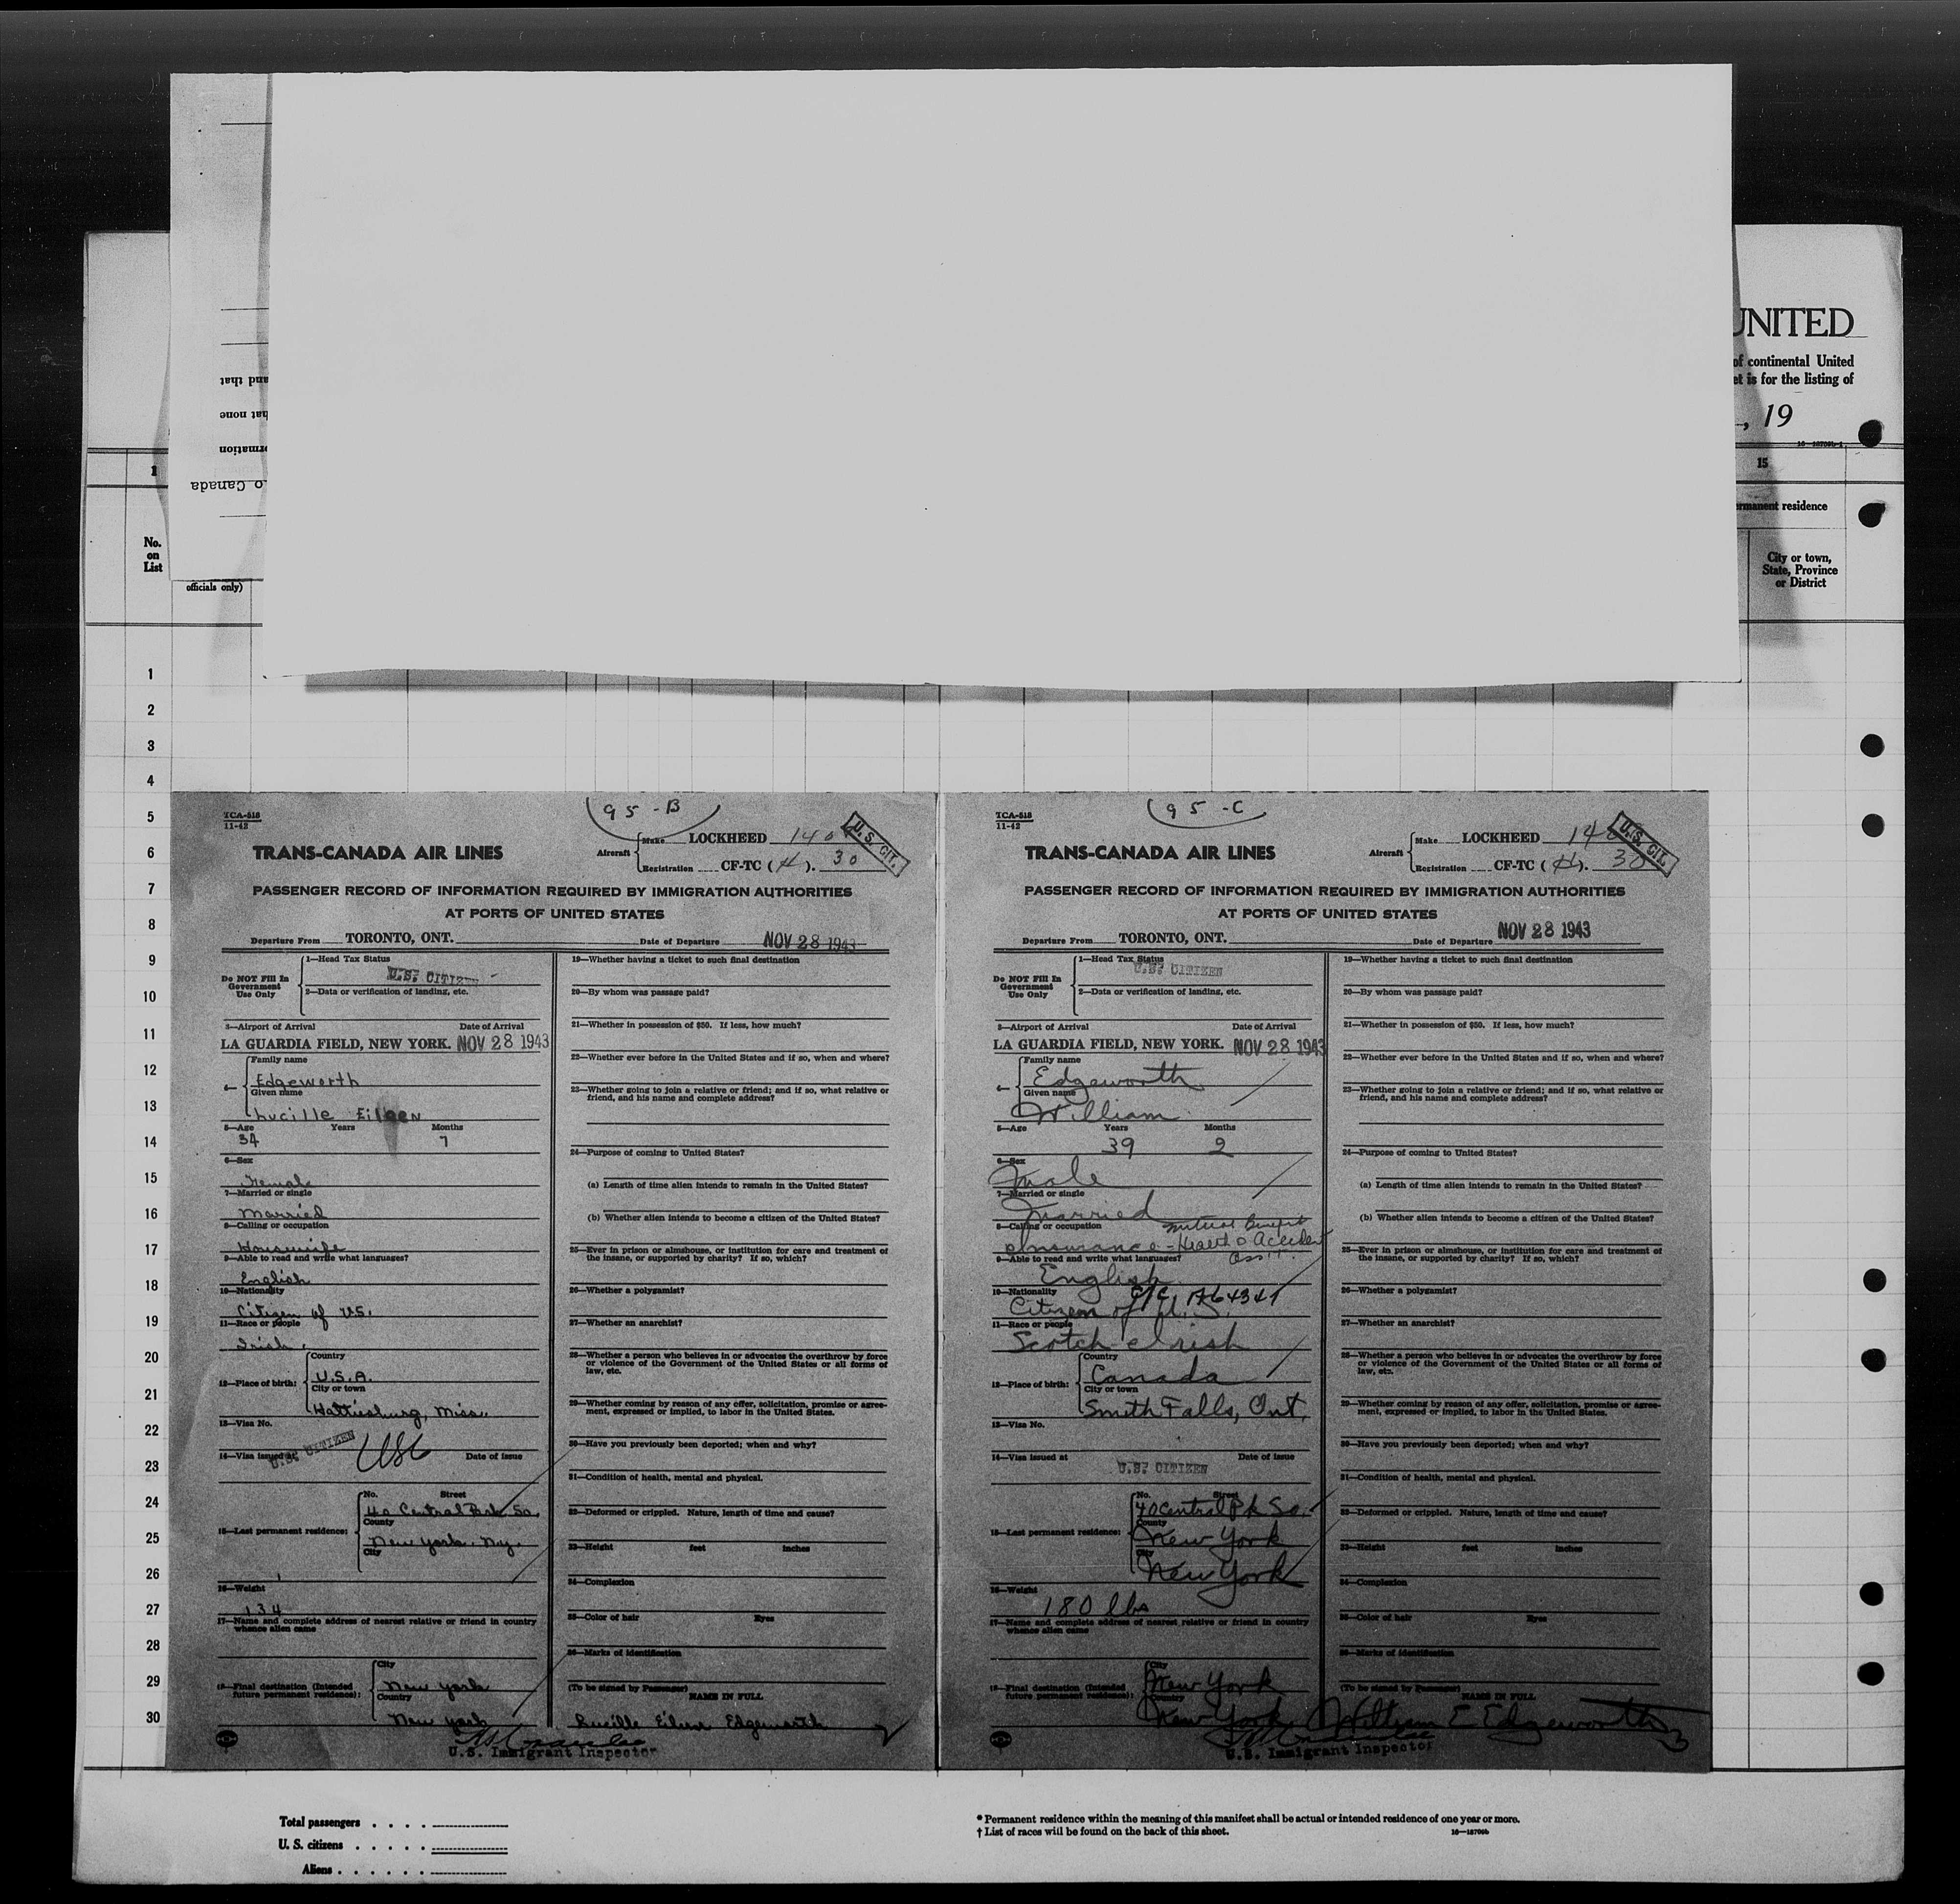 UNITED
of continental United
et is for the listing of
, 19
and that
that none
ormation
o Canada
1
15
ermanent residence
No.
on
List
officials only)
City or town,
State, Province
or District
1
2
3
4
5
6
7
8
9
10
11
12
13
14
15
16
17
18
19
20
21
22
23
24
25
26
27
28
29
30
95-B
TCA-518
11-42
U. S. CIT.
TRANS-CANADA AIR LINES
Aircraft
Make LOCKHEED 1408
Registration CF-TC ( H ). 30
PASSENGER RECORD OF INFORMATION REQUIRED BY IMMIGRATION AUTHORITIES
AT PORTS OF UNITED STATES
Departure From TORONTO, ONT. Date of Departure NOV 28 1943
Do NOT Fill In
Government
Use Only
1—Head Tax Status
U.S. CITIZEN
2—Data or verification of landing, etc.
3—Airport of Arrival Date of Arrival
LA GUARDIA FIELD, NEW YORK. NOV 28 1943
4—
Family name
Edgeworth
Given name
Lucille Eileen
5—Age Years Months
34 7
6—Sex
Female
7—Married or single
Married
8—Calling or occupation
Housewife
9—Able to read and write what languages?
English
10—Nationality
Citizen of U.S.
11—Race or people
Irish
12—Place of birth:
Country
U.S.A.
City or town
Hattiesburg, Miss.
13—Visa No.
U.S. CITIZEN USC
14—Visa issued at Date of issue
15—Last permanent residence:
No. Street
40 Central Park So.
County
New York, N.Y.
City
16—Weight
134
17—Name and complete address of nearest relative or friend in country
whence alien came
18—Final destination (Intended
future permanent residence):
City
New York
Country
New York
19—Whether having a ticket to such final destination
20—By whom was passage paid?
21—Whether in possession of $50. If less, how much?
22—Whether ever before in the United States and if so, when and where?
23—Whether going to join a relative or friend; and if so, what relative or
friend, and his name and complete address?
24—Purpose of coming to United States?
(a) Length of time alien intends to remain in the United States?
(b) Whether alien intends to become a citizen of the United States?
25—Ever in prison or almshouse, or institution for care and treatment of
the insane, or supported by charity? If so, which?
26—Whether a polygamist?
27—Whether an anarchist?
28—Whether a person who believes in or advocates the overthrow by force
or violence of the Government of the United States or all forms of
law, etc.
29—Whether coming by reason of any offer, solicitation, promise or agree-
ment, expressed or implied, to labor in the United States.
30—Have you previously been deported; when and why?
31—Condition of health, mental and physical.
32—Deformed or crippled. Nature, length of time and cause?
33—Height feet inches
34—Complexion
35—Color of hair Eyes
36—Marks of identification
(To be signed by Passenger)
NAME IN FULL
Lucille Eileen Edgeworth
U.S. Immigrant Inspector
95-C
TCA-518
11-42
U. S. CIT.
TRANS-CANADA AIR LINES
Aircraft
Make LOCKHEED 1408
Registration CF-TC ( H ). 30
PASSENGER RECORD OF INFORMATION REQUIRED BY IMMIGRATION AUTHORITIES
AT PORTS OF UNITED STATES
Departure From TORONTO, ONT. Date of Departure NOV 28 1943
Do NOT Fill In
Government
Use Only
1—Head Tax Status
U.S. CITIZEN
2—Data or verification of landing, etc.
3—Airport of Arrival Date of Arrival
LA GUARDIA FIELD, NEW YORK. NOV 28 1943
4—
Family name
Edgeworth
Given name
William
5—Age Years Months
39 2
6—Sex
Male
7—Married or single
Married
8—Calling or occupation
Mutual Benefit
Insurance - Health & Accident
Ass'n
9—Able to read and write what languages?
English
10—Nationality
Citizen of U. S.
11—Race or people
Scotch-Irish
12—Place of birth:
Country
Canada
City or town
Smith Falls, Ont.
13—Visa No.
14—Visa issued at Date of issue
U.S. CITIZEN
15—Last permanent residence:
No. Street
40 Central Pk So.
County
New York
City
New York
16—Weight
180 lbs
17—Name and complete address of nearest relative or friend in country
whence alien came
18—Final destination (Intended
future permanent residence):
City
New York
Country
New York
19—Whether having a ticket to such final destination
20—By whom was passage paid?
21—Whether in possession of $50. If less, how much?
22—Whether ever before in the United States and if so, when and where?
23—Whether going to join a relative or friend; and if so, what relative or
friend, and his name and complete address?
24—Purpose of coming to United States?
(a) Length of time alien intends to remain in the United States?
(b) Whether alien intends to become a citizen of the United States?
25—Ever in prison or almshouse, or institution for care and treatment of
the insane, or supported by charity? If so, which?
26—Whether a polygamist?
27—Whether an anarchist?
28—Whether a person who believes in or advocates the overthrow by force
or violence of the Government of the United States or all forms of
law, etc.
29—Whether coming by reason of any offer, solicitation, promise or agree-
ment, expressed or implied, to labor in the United States.
30—Have you previously been deported; when and why?
31—Condition of health, mental and physical.
32—Deformed or crippled. Nature, length of time and cause?
33—Height feet inches
34—Complexion
35—Color of hair Eyes
36—Marks of identification
(To be signed by Passenger)
NAME IN FULL
William E Edgeworth
U.S. Immigrant Inspector
Total passengers
U. S. citizens
Aliens
* Permanent residence within the meaning of this manifest shall be actual or intended residence of one year or more.
† List of races will be found on the back of this sheet.